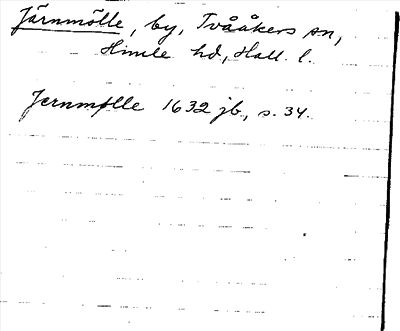 Järnmölle, by, Tvååkers sn,
Himle hd, Hall. l.
Jernmølle 1632 jb, s. 34.